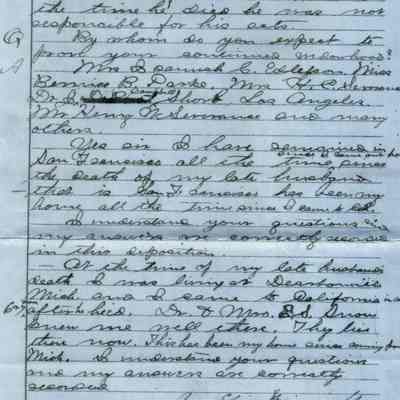 the time he died he was not
responsible for his acts.
Q By whom do you expect to
prove your continued widowhood?
A Mrs Hannah C. Miss
Bernice B. Mrs. H. C. Servance
Dr. Short, Los Angeles
Mr Henry W. Servance and many
others.
Yes sir I have remained in
San Francisco all the time since
the death of my late husband
that is San Francisco has been my
home all the time since I came to Cal.
I understand your questions
my answers are correctly recorded
in this deposition.
At the time of my late husbands
death I was living at Dearborn
Mich. and I came to California in
after he died. Dr. & Mrs. E. S. Snow
knew me well there. They live
there now. This has been my home since coming from
Mich. I understand your questions
and my answers are correctly
recorded